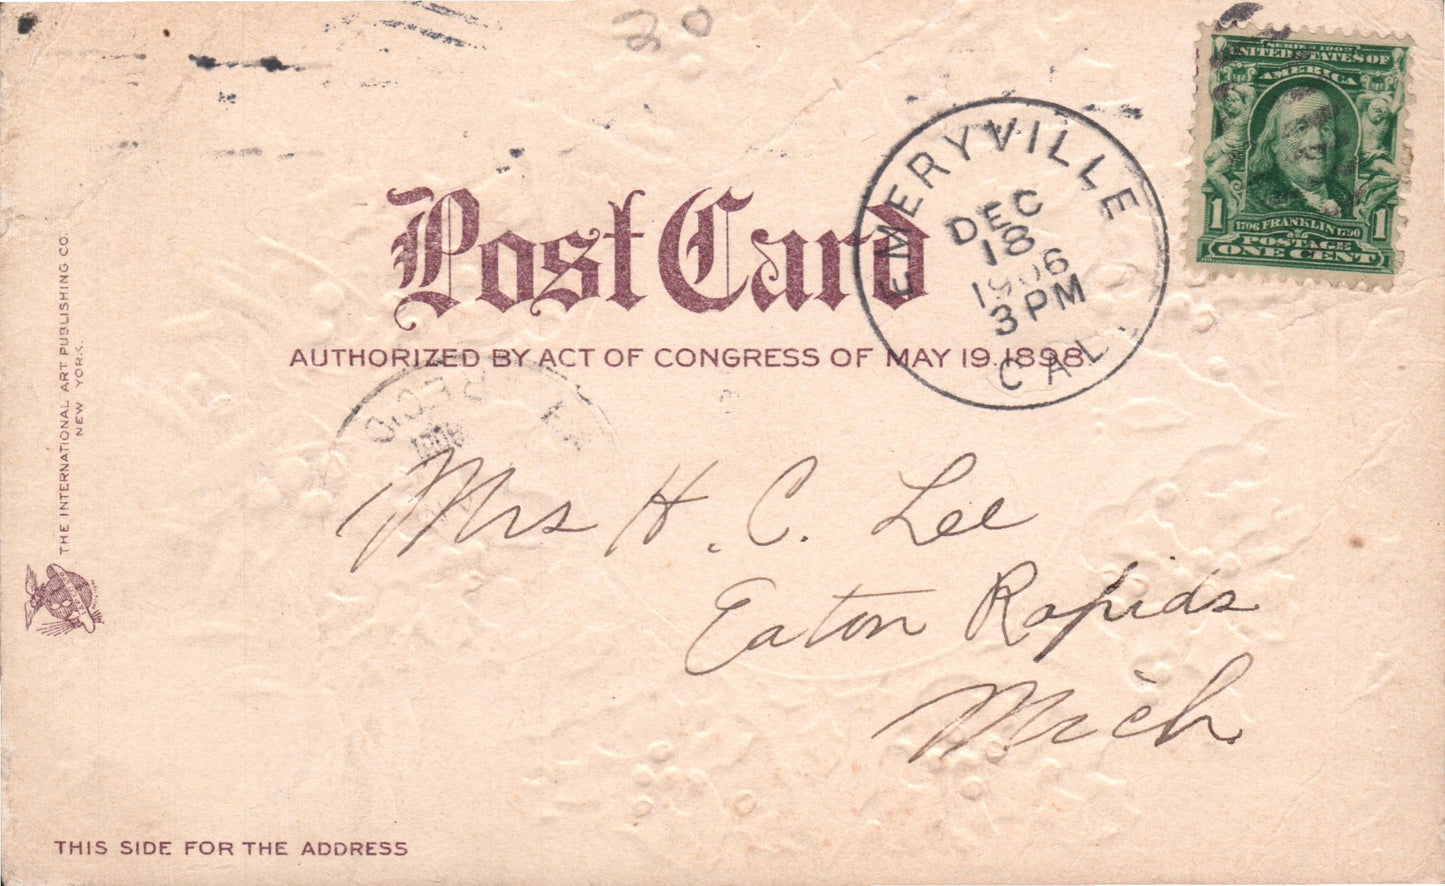 20
SERIES 1902
UNITED STATES OF
AMERICA
1 1706 FRANKLIN 1790 1
POSTAGE
ONE CENT
EMERYVILLE
DEC
18
1906
3 PM
CAL.
Post Card
AUTHORIZED BY ACT OF CONGRESS OF MAY 19, 1898.
THE INTERNATIONAL ART PUBLISHING CO.
NEW YORK.
1906
Mrs H. C. Lee
Eaton Rapids
Mich.
THIS SIDE FOR THE ADDRESS